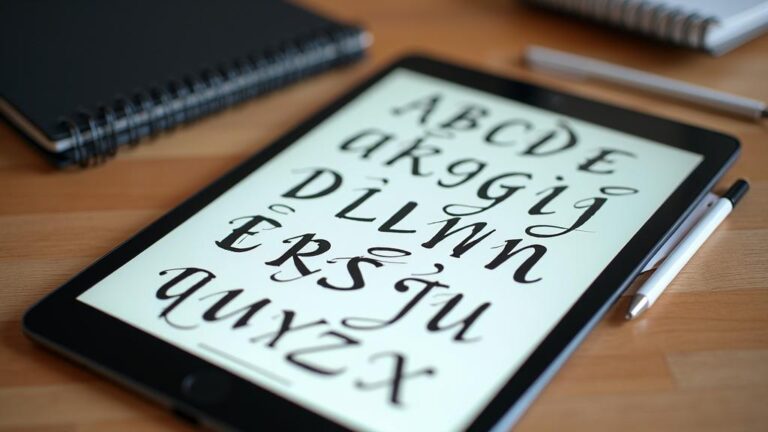 ABCDE
arggij
DILLNN
ERSTU
QUYZX